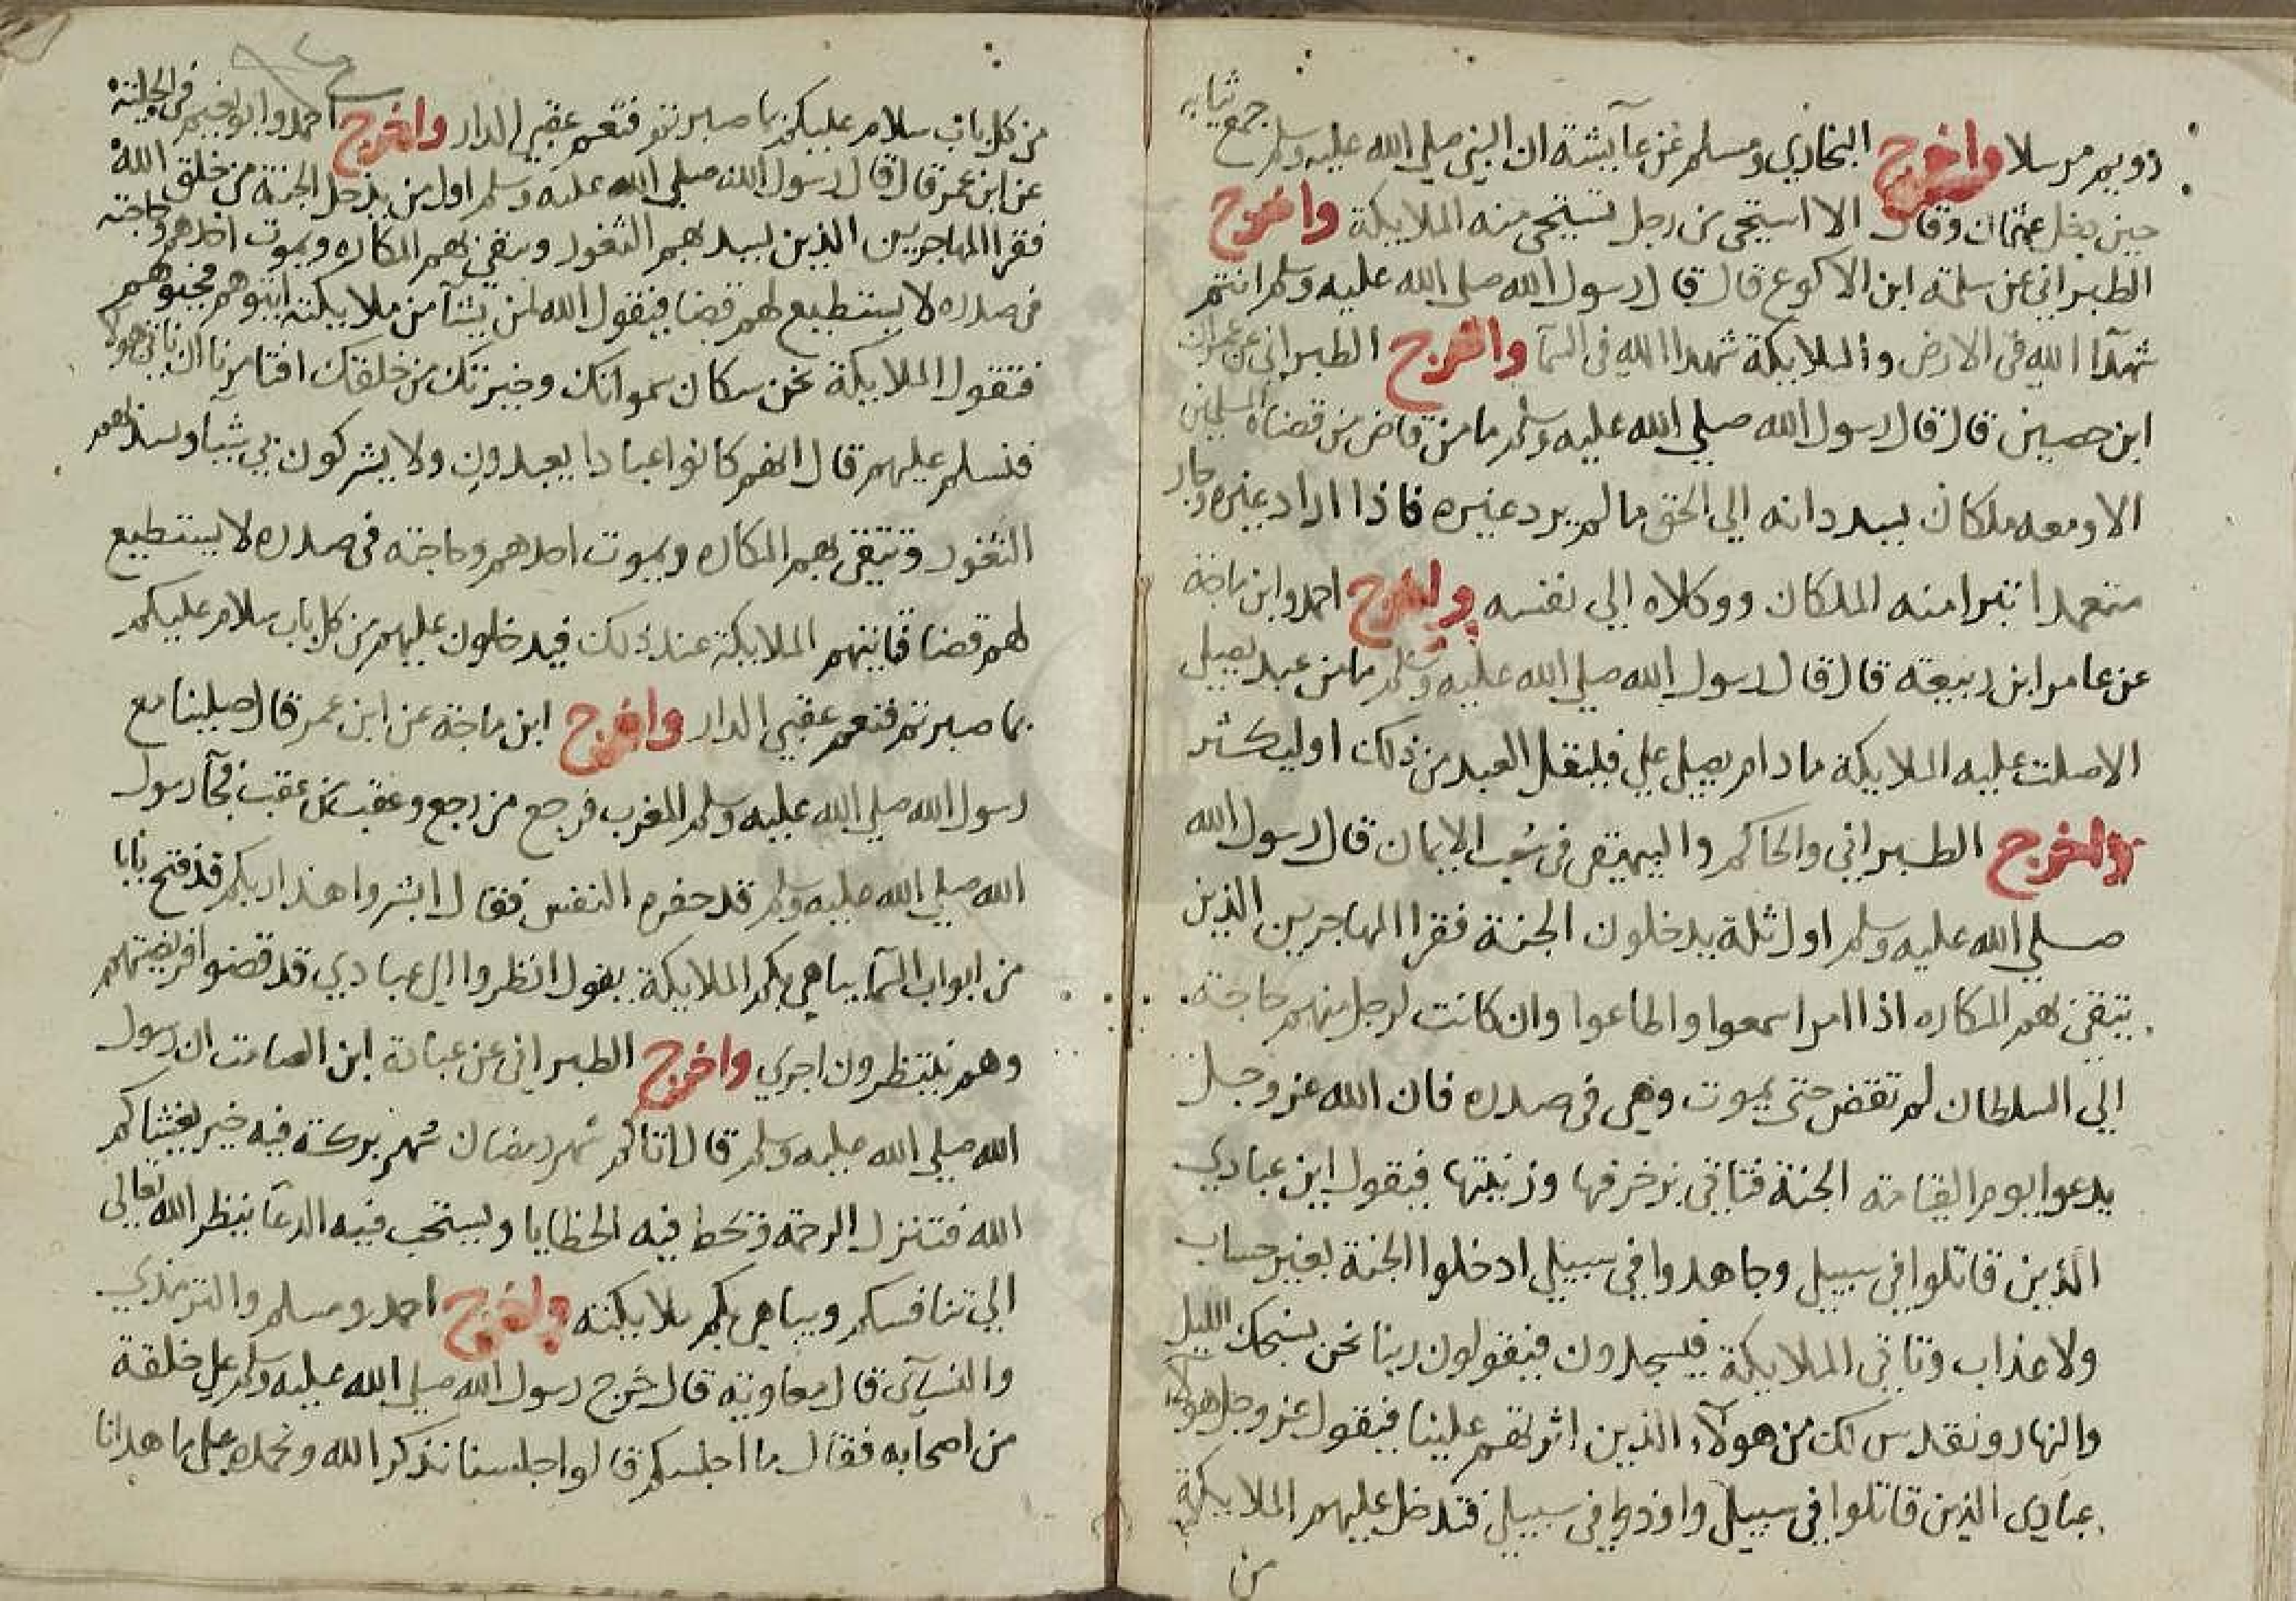 رويم مرسلا واخرج البخاري ومسلم عن عآيشة ان النبي صلي الله عليه وسلم جمع ثيابه
حين دخل عثمان وقال الا استحي من رجل تستحي منه الملايكة واخرج
الطبراني عن سلمة ابن الاكوع قال قال رسول الله صلي الله عليه وسلم انتم
شهدآ الله في الارض والملايكة شهدا الله في السمآ واخرج الطبراني عن عمران
ابن حصين قال قال رسول الله صلي الله عليه وسلم ما من قاض من قضاة المسلمين
الا ومعه ملكان يسددانه الي الحق ما لم يرد غيره فاذا اراد غيره وجار
متعمدا تبرا منه الملكان ووكلاه الي نفسه واخرج احمد وابن ماجة
عن عامر ابن ربيعة قال قال رسول الله صلي الله عليه وسلم ما من عبد يصلي
الا صلت عليه الملايكة ما دام يصلي علي فليقل العبد من ذلك او ليكثر
واخرج الطبراني والحاكم والبيهقي في شعب الايمان قال رسول الله
صلي الله عليه وسلم اول ثلة يدخلون الجنة فقرا المهاجرين الذين
يتقي بهم المكاره اذا امرا سمعوا واطاعوا وان كانت لرجل منهم حاجة
الي السلطان لم تقض حتي يموت وهي في صدره فان الله عز وجل
يدعوا يوم القيامة الجنة فتاتي بزخرفها وزينتها فيقول اين عبادي
الذين قاتلوا في سبيلي وجاهدوا في سبيلي ادخلوا الجنة بغير حساب
ولا عذاب وتاتي الملايكة فيسجدون فيقولون ربنا نحن نسبحك الليل
والنهار ونقدس لك من هولآء الذين اثرتهم علينا فيقول عز وجل هولاء
عبادي الذين قاتلوا في سبيلي واوذوا في سبيلي فتدخل عليهم الملايكة
من
من كل باب سلام عليكم بما صبرتم فنعم عقبي الدار واخرج احمد وابو نعيم في الحلية
عن ابن عمر قال قال رسول الله صلي الله عليه وسلم اول من يدخل الجنة من خلق الله
فقرا المهاجرين الذين يسد بهم الثغور وتتقي بهم المكاره ويموت احدهم وحاجته
في صدره لا يستطيع لهم قضا فيقول الله لمن يشآ من ملايكته ايتوهم فحيوهم
فتقول الملايكة نحن سكان سمواتك وخيرتك من خلقك افتامرنا ان ناتي هولا
فنسلم عليهم قال انهم كانوا عبادا يعبدون ولا يشركون بي شيا وسد بهم
الثغور وتتقي بهم المكاره ويموت احدهم وحاجته في صدره لا يستطيع
لهم قضا فاتتهم الملايكة عند ذلك فيدخلون عليهم من كل باب سلام عليكم
بما صبرتم فنعم عقبي الدار واخرج ابن ماجة عن ابن عمر قال صلينا مع
رسول الله صلي الله عليه وسلم المغرب فرجع من رجع وعقب من عقب فجآ رسول
الله صلي الله عليه وسلم قد حفزه النفس فقال ابشروا هذا ربكم قد فتح بابا
من ابواب السمآ يباهي بكم الملايكة يقول انظروا الي عبادي قد قضوا فريضتهم
وهم ينتظرون اخري واخرج الطبراني عن عبادة ابن الصامت ان رسول
الله صلي الله عليه وسلم قال اتاكم شهر رمضان شهر بركة فيه خير يغشاكم
الله فتنزل الرحمة وتحط فيه الخطايا ويستجب فيه الدعآ ينظر الله تعالي
الي تنافسكم ويباهي بكم ملايكته واخرج احمد ومسلم والترمذي
والنسآئي قال معاوية قال خرج رسول الله صلي الله عليه وسلم علي حلقة
من اصحابه فقال ما اجلسكم قالوا جلسنا نذكر الله ونحمده علي ما هدانا